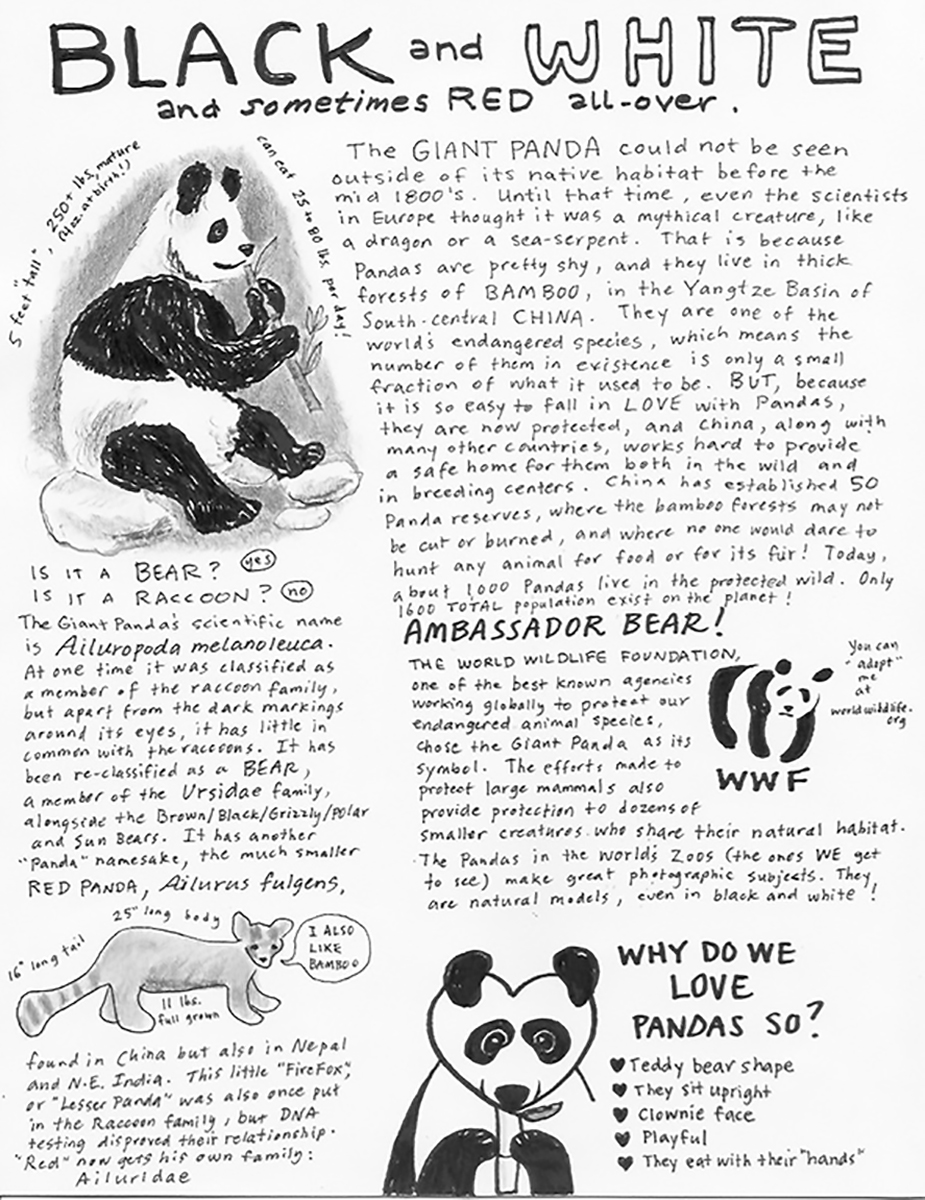 BLACK and WHITE
and sometimes RED all-over.
5 feet "tall", 250+ lbs, mature
(4oz. at birth!)
can eat 25 to 80 lbs. per day!
The GIANT PANDA could not be seen
outside of its native habitat before the
mid 1800's. Until that time, even the scientists
in Europe thought it was a mythical creature, like
a dragon or a sea-serpent. That is because
Pandas are pretty shy, and they live in thick
forests of BAMBOO, in the Yangtze Basin of
South-central CHINA. They are one of the
world's endangered species, which means the
number of them in existence is only a small
fraction of what it used to be. BUT, because
it is so easy to fall in LOVE with Pandas,
they are now protected, and China, along with
many other countries, works hard to provide
a safe home for them both in the wild and
in breeding centers. China has established 50
Panda reserves, where the bamboo forests may not
be cut or burned, and where no one would dare to
hunt any animal for food or for its fur! Today,
about 1,000 Pandas live in the protected wild. Only
1600 TOTAL population exist on the planet!
IS IT A BEAR? yes
IS IT A RACCOON? no
The Giant Panda's scientific name
is Ailuropoda melanoleuca.
At one time it was classified as
a member of the raccoon family,
but apart from the dark markings
around its eyes, it has little in
common with the raccoons. It has
been re-classified as a BEAR,
a member of the Ursidae family,
alongside the Brown/Black/Grizzly/Polar
and Sun Bears. It has another
"Panda" namesake, the much smaller
RED PANDA, Ailurus fulgens,
16" long tail
25" long body
11 lbs.
full grown
I ALSO
LIKE
BAMBOO
found in China but also in Nepal
and N.E. India. This little "FireFox",
or "Lesser Panda" was also once put
in the Raccoon family, but DNA
testing disproved their relationship.
"Red" now gets his own family:
Ailuridae
AMBASSADOR BEAR!
THE WORLD WILDLIFE FOUNDATION,
one of the best known agencies
working globally to protect our
endangered animal species,
chose the Giant Panda as its
symbol. The efforts made to
protect large mammals also
provide protection to dozens of
smaller creatures who share their natural habitat.
The Pandas in the world's Zoos (the ones WE get
to see) make great photographic subjects. They
are natural models, even in black and white!
You can
"adopt"
me
at
worldwildlife.
org
WWF
WHY DO WE
LOVE
PANDAS SO?
♥ Teddy bear shape
♥ They sit upright
♥ Clownie face
♥ Playful
♥ They eat with their "hands"